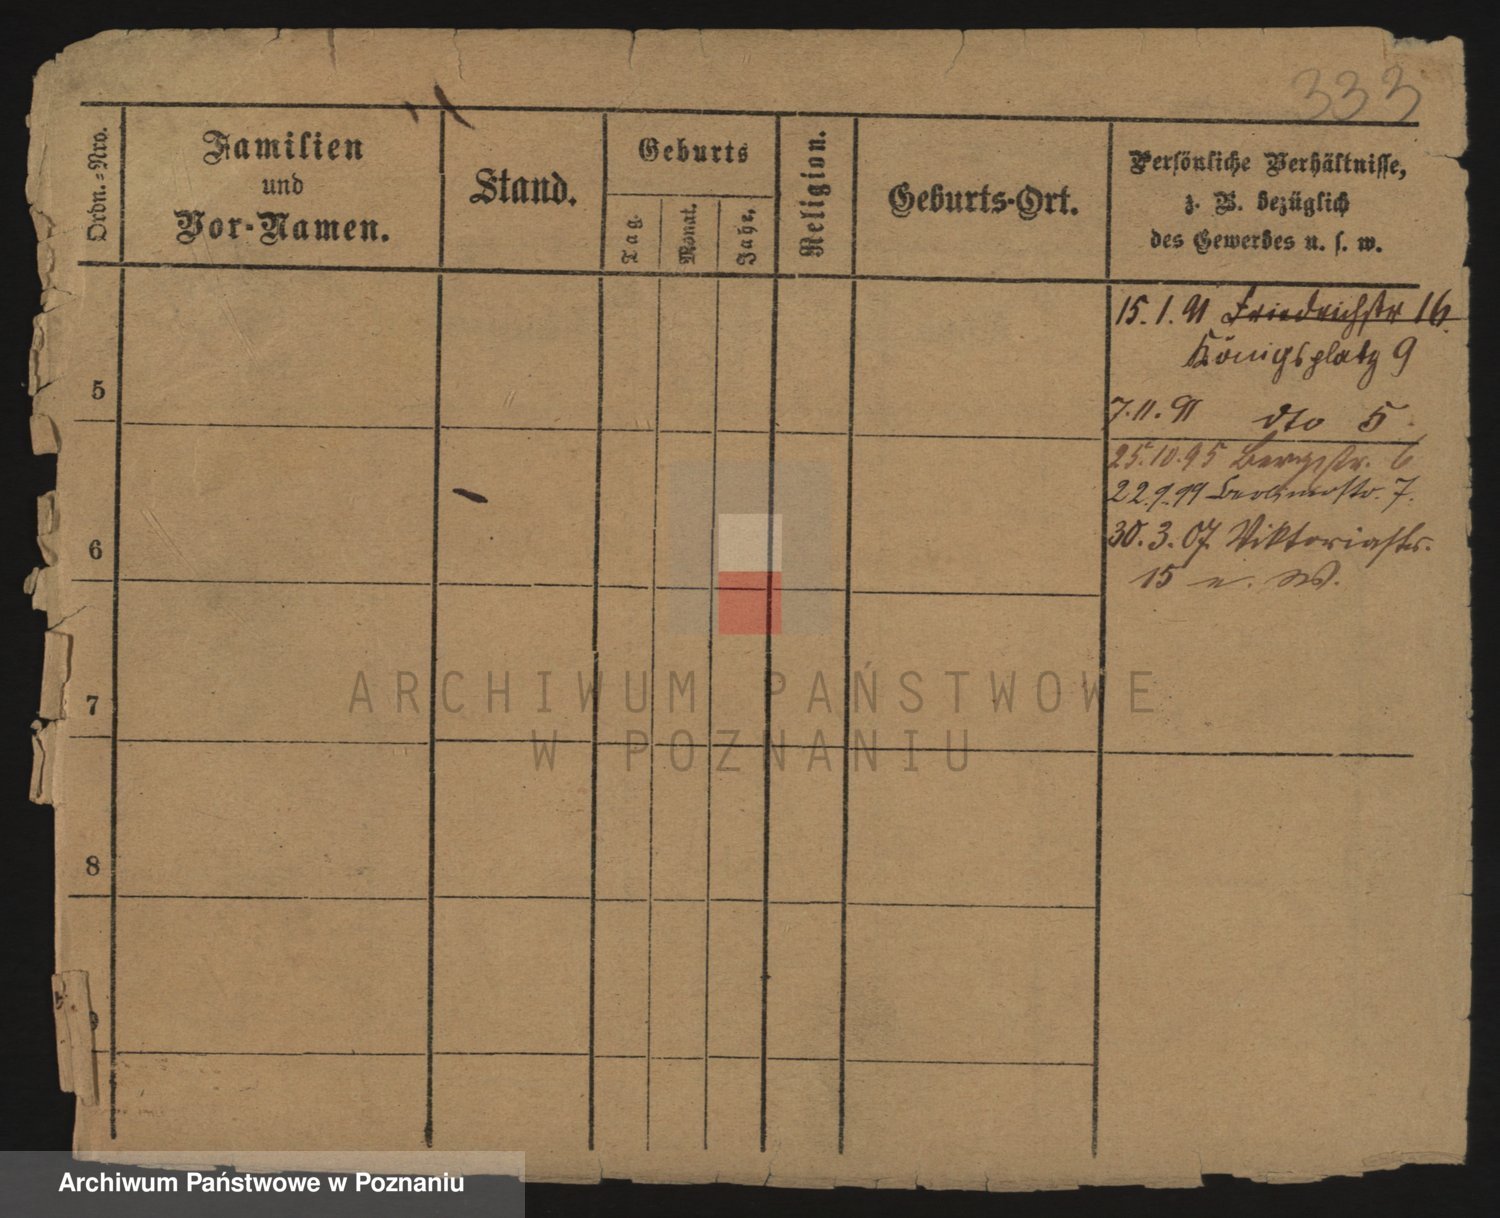 333
Ordn.-Nro.
Familien
und
Vor-Namen.
Stand.
Geburts
Tag.
Monat.
Jahr.
Religion.
Geburts-Ort.
Persönliche Verhältnisse,
z. B. bezüglich
des Gewerbes u. s. w.
15. 1. 91 Friedrichstr 16
Königsplatz 9
5
7. 11. 91 dto 5
25. 10. 95 Bergstr. 6
22. 9. 99 7.
6
30. 3. 07 Viktoriastr.
15
7
8
ARCHIWUM PAŃSTWOWE
W POZNANIU
Archiwum Państwowe w Poznaniu